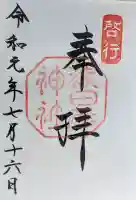 啓行
奉拝
神社
令和元年七月十六日